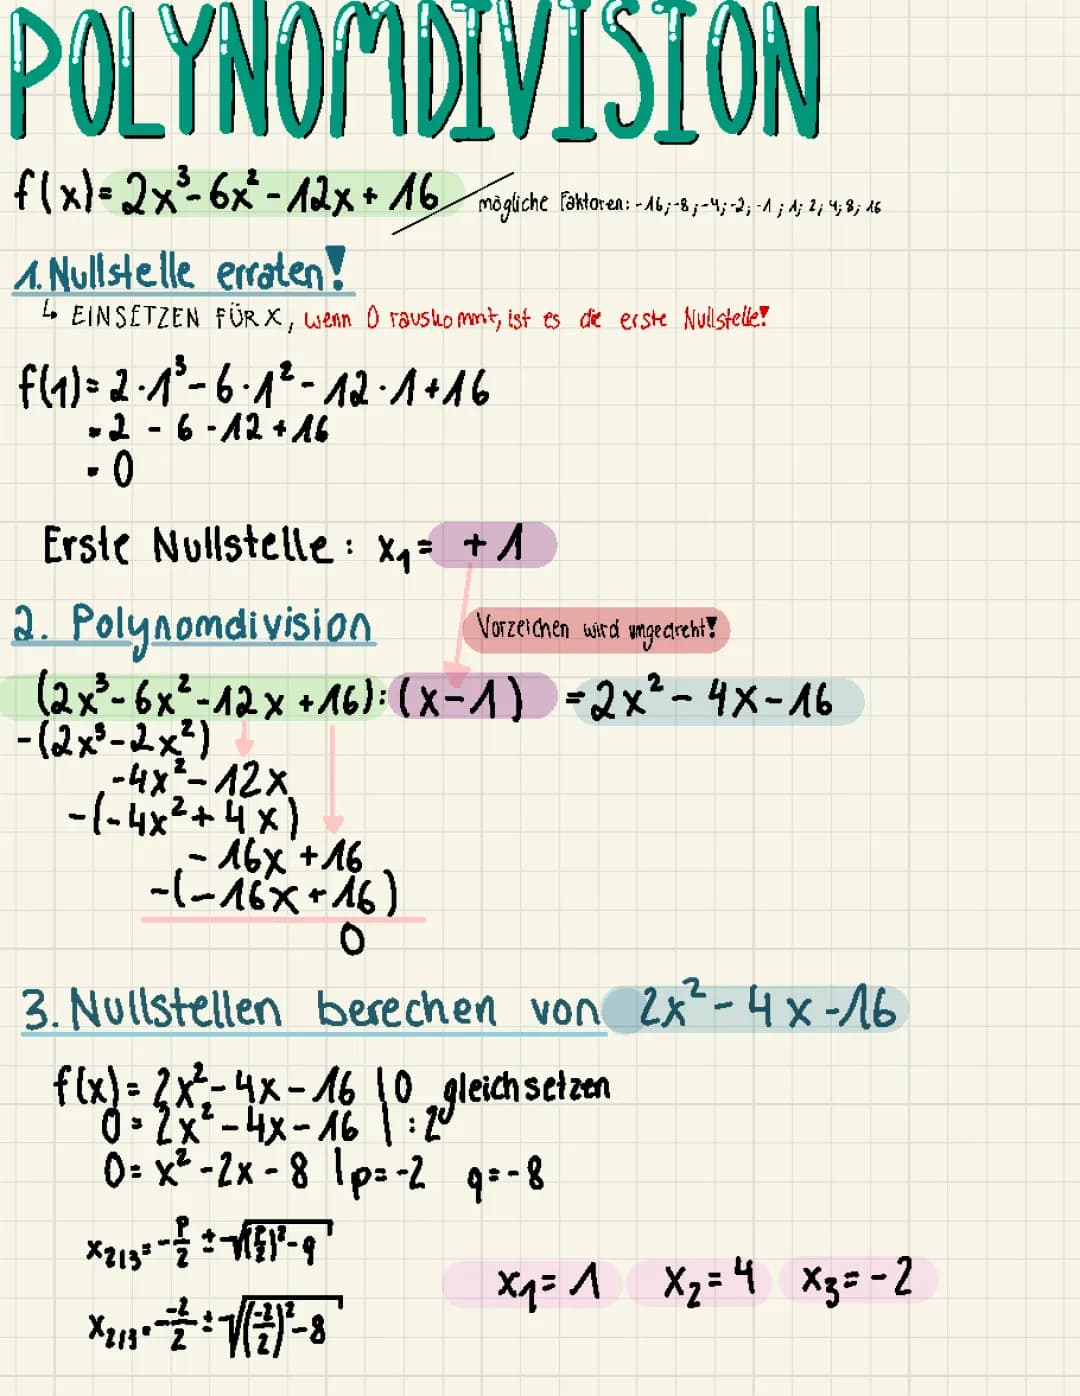 POLYNOMDIVISION
f(x)= 2x³-6x²-12x+16 mögliche Faktoren: -16;-8;-4;-2;-1;1;2;4;8;16
1. Nullstelle erraten!
↳ EINSETZEN FÜR X, wenn 0 rauskommt, ist es die erste Nullstelle!
f(1)= 2·1³-6·1²-12·1+16
=2 - 6 -12 +16
= 0
Erste Nullstelle: x₁= +1
2. Polynomdivision Vorzeichen wird umgedreht!
(2x³-6x²-12x+16):(x-1) =2x²-4x-16
-(2x³-2x²)
-4x²-12x
-(-4x²+4x)
-16x+16
-(-16x+16)
0
3. Nullstellen berechen von 2x²-4x-16
f(x)= 2x²-4x-16 |0 gleichsetzen
0=2x²-4x-16 |:2
0= x²-2x-8 |p=-2 q=-8
x₂|₃=-p/2 ± √((p/2)²-q)
x₂|₃=-(-2)/2 ± √((-2/2)²-8)
x₁=1 x₂=4 x₃=-2